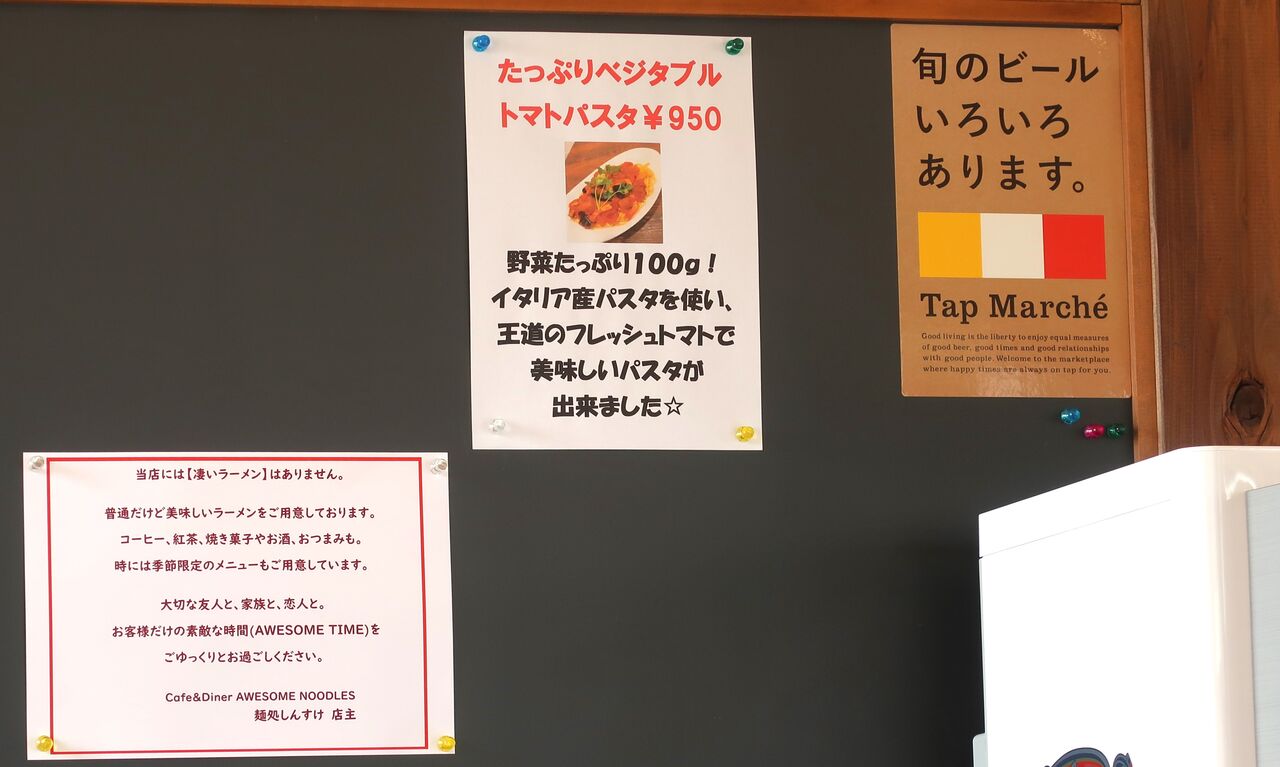 たっぷりベジタブル
トマトパスタ¥950
野菜たっぷり100g！
イタリア産パスタを使い、
王道のフレッシュトマトで
美味しいパスタが
出来ました☆
旬のビール
いろいろ
あります。
Tap Marché
Good living is the liberty to enjoy equal measures
of good beer, good times and good relationships
with good people. Welcome to the marketplace
where happy times are always on tap for you.
当店には【凄いラーメン】はありません。
普通だけど美味しいラーメンをご用意しております。
コーヒー、紅茶、焼き菓子やお酒、おつまみも。
時には季節限定のメニューもご用意しています。
大切な友人と、家族と、恋人と。
お客様だけの素敵な時間(AWESOME TIME)を
ごゆっくりとお過ごしください。
Cafe&Diner AWESOME NOODLES
麺処しんすけ 店主